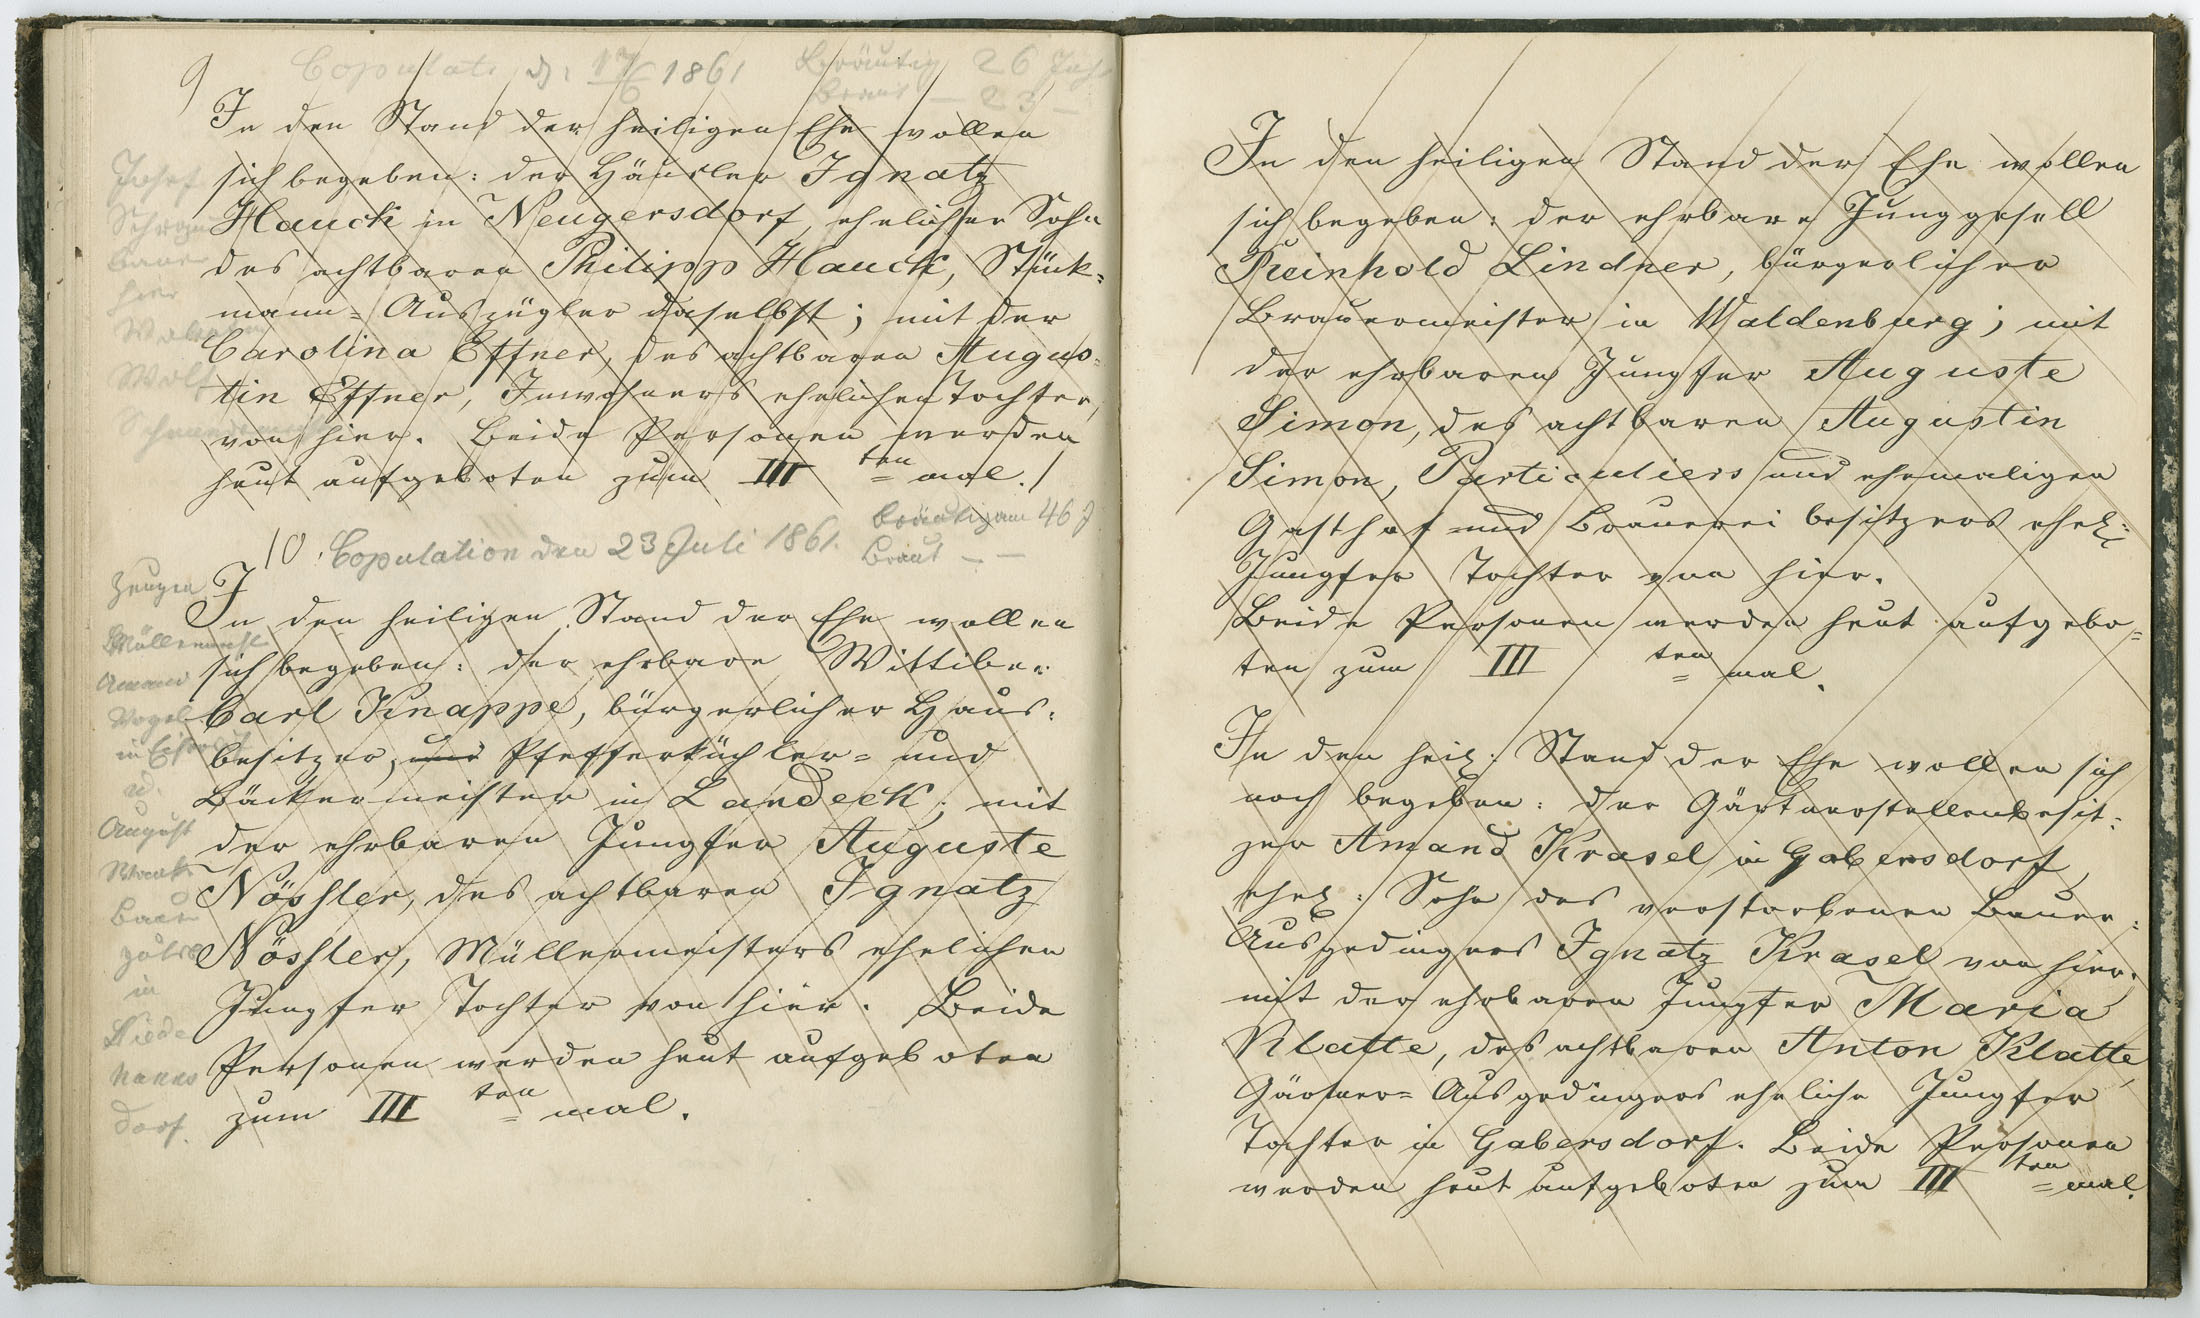 9
Copulat. d. 17/6 1861 Bräutig 26 Jah
Braut — 23 —
In den Stand der heiligen Ehe wollen
sich begeben: der Häusler Ignatz
Hauck in Neugersdorf, ehelicher Sohn
des achtbaren Philipp Hauck, Stück-
mann-Auszügler daselbst; mit der
Carolina Effner, des achtbaren Augus-
tin Effner, Inwohners ehelichen Tochter,
von hier. Beide Personen werden
heut aufgeboten zum III ten mal.
Josef
Bauer
hier
Wolf
10. Copulation den 23 Juli 1861. Bräutigam 46 J
Braut — —
In den heiligen Stand der Ehe wollen
sich begeben: der ehrbare Wittiber
Carl Knappe, bürgerlicher Haus-
besitzer, und Pfefferküchler- und
Bäckermeister in Landeck; mit
der ehrbaren Jungfer Auguste
Nössler, des achtbaren Ignatz
Nössler, Müllermeisters ehelichen
Jungfer Tochter von hier. Beide
Personen werden heut aufgeboten
zum III ten mal.
Zeugen
Müllermeist
Amand
Vogel
in
u.
August
Bauer
gutsb
in
Niede
hanns
dorf.
In den heiligen Stand der Ehe wollen
sich begeben: der ehrbare Junggesell
Reinhold Lindner, bürgerlicher
Brauermeister in Waldenburg; mit
der ehrbaren Jungfer Auguste
Simon, des achtbaren Augustin
Simon, Particuliers und ehemaligen
Gasthof- und Brauerei besitzers ehel:
Jungfer Tochter von hier.
Beide Personen werden heut aufgebo-
ten zum III ten mal.
In den heil: Stand der Ehe wollen sich
noch begeben: der Gärtnerstellenbesit-
zer Amand Krasel in Gabersdorf,
ehel: Sohn des verstorbenen Bauer-
Ausgedingers Ignatz Krasel von hier;
mit der ehrbaren Jungfer Maria
Klatte, des achtbaren Anton Klatte,
Gärtner-Ausgedingers eheliche Jungfer
Tochter in Gabersdorf. Beide Personen
werden heut aufgeboten zum III ten mal.